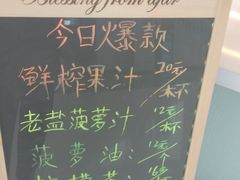 Blessing from afar
今日爆款
鲜榨果汁 20元/杯
老盐菠萝汁 12元/杯
菠萝油: 12元/个